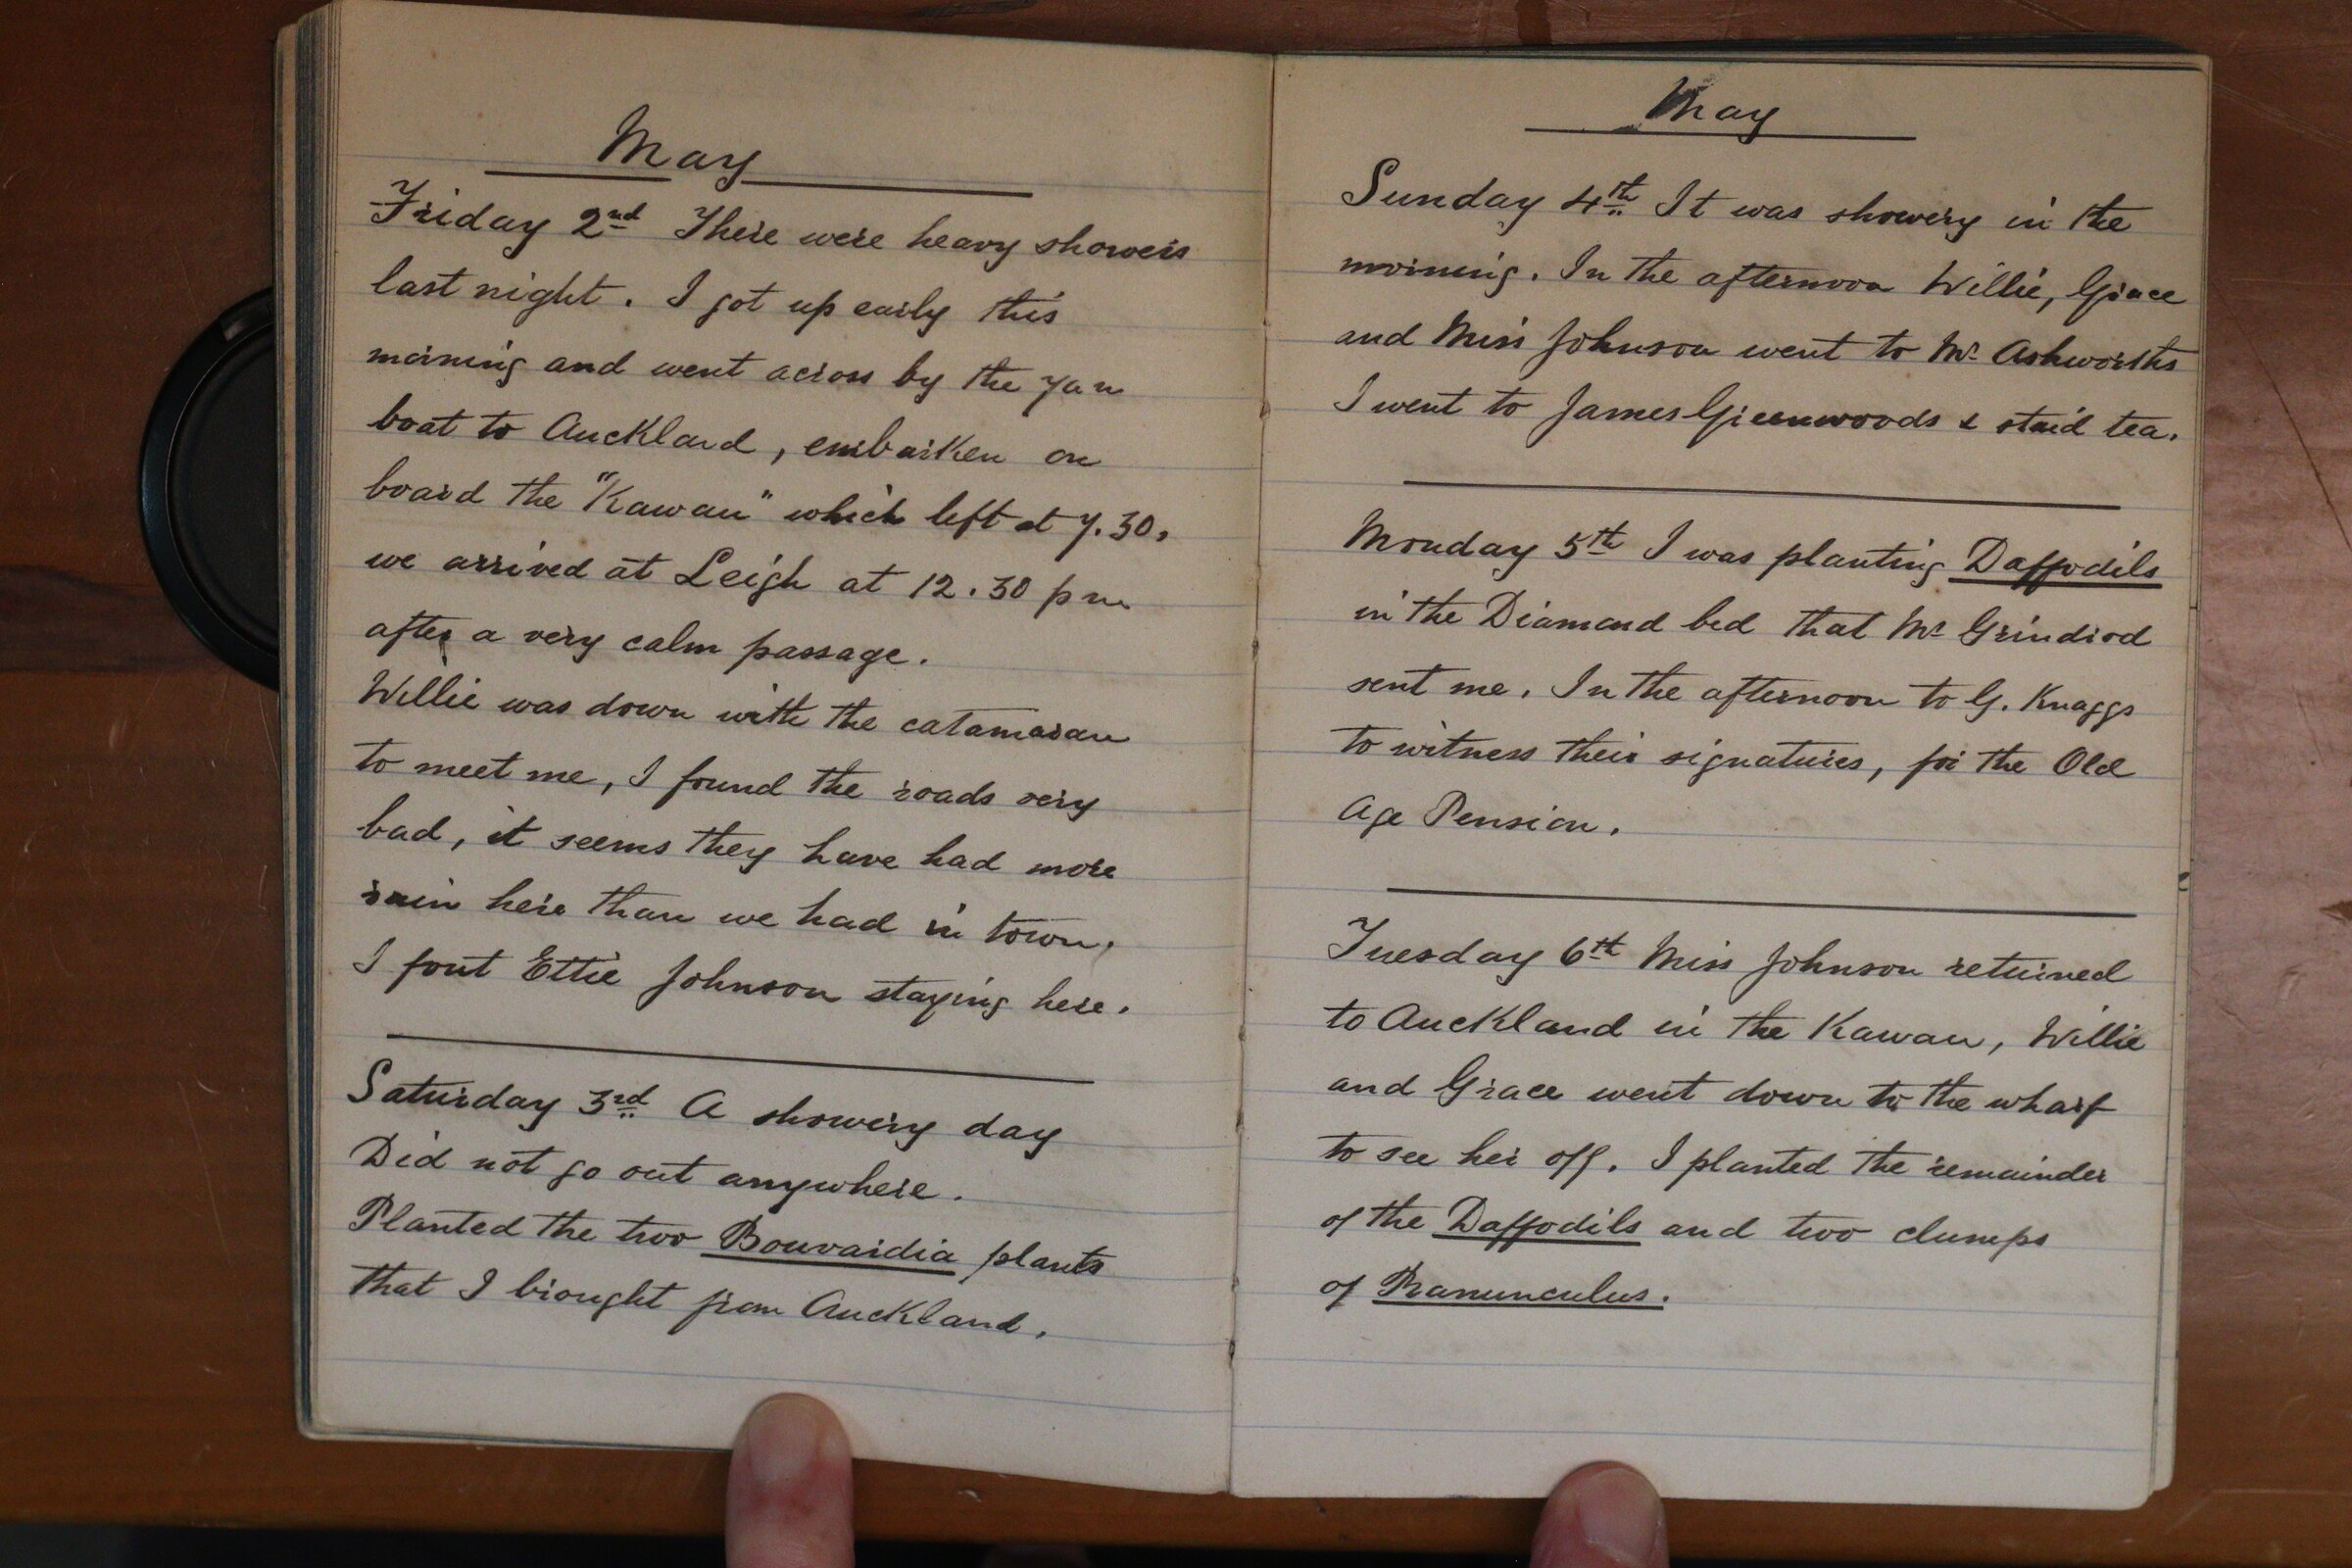 May
Friday 2nd There were heavy showers
last night. I got up early this
morning and went across by the 7 a m
boat to Auckland, embarken on
board the "Kawau" which left at 7.30,
we arrived at Leigh at 12.30 p m
after a very calm passage.
Willie was down with the catamaran
to meet me, I found the roads very
bad, it seems they have had more
rain here than we had in town.
I font Ettie Johnson staying here.
Saturday 3rd A showery day
Did not go out anywhere.
Planted the two Bouvardia plants
that I brought from Auckland.
May
Sunday 4th It was showery in the
morning. In the afternoon Willie, Grace
and Miss Johnson went to Mr Ashworths
I went to James Greenwoods & staid tea.
Monday 5th I was planting Daffodils
in the Diamond bed that Mr Grindrod
sent me. In the afternoon to G. Knaggs
to witness their signatures, for the Old
Age Pension.
Tuesday 6th Miss Johnson returned
to Auckland in the Kawau, Willie
and Grace went down to the wharf
to see her off. I planted the remainder
of the Daffodils and two clumps
of Ranunculus.